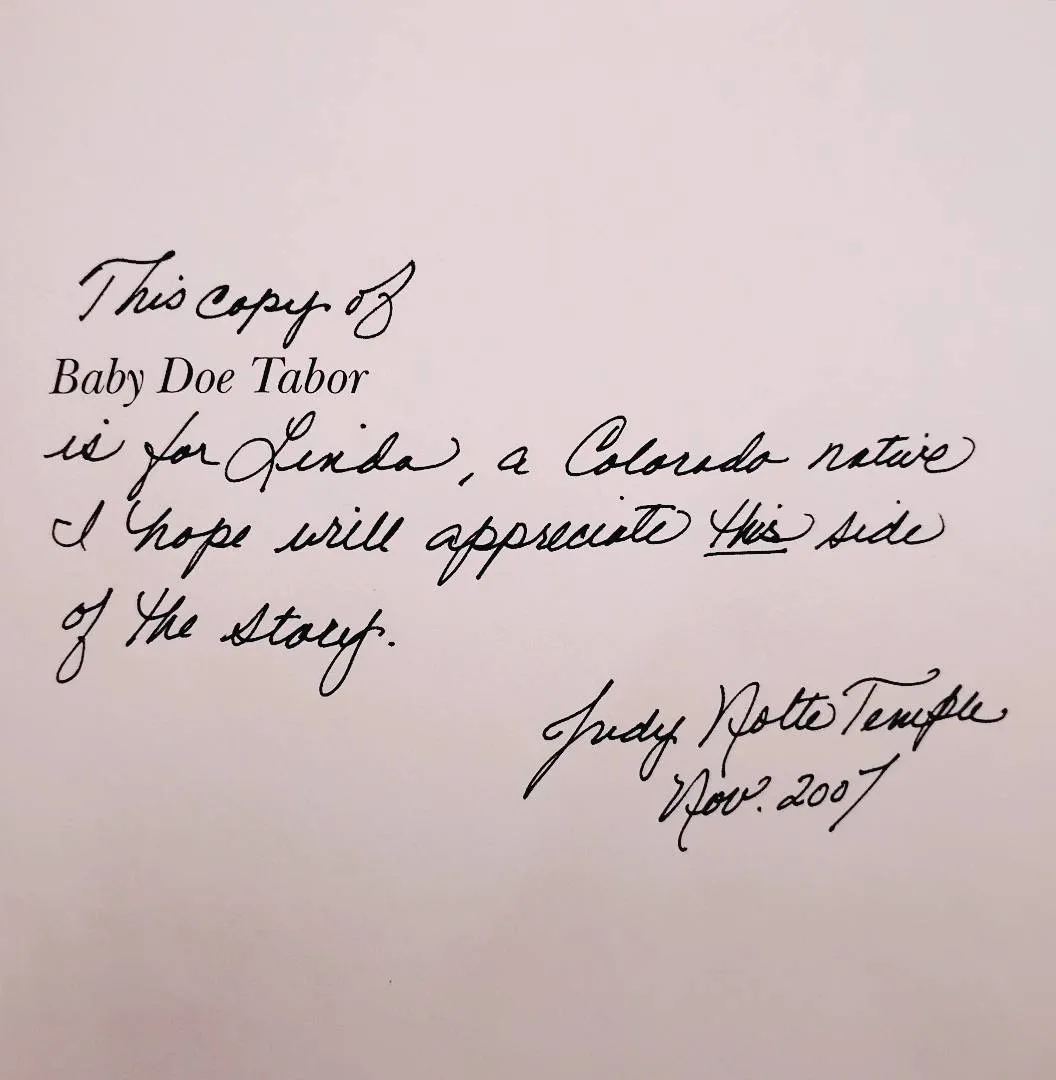 This copy of
Baby Doe Tabor
is for Linda, a Colorado native
I hope will appreciate this side
of the story.
Judy Nolte Temple
Nov. 2007